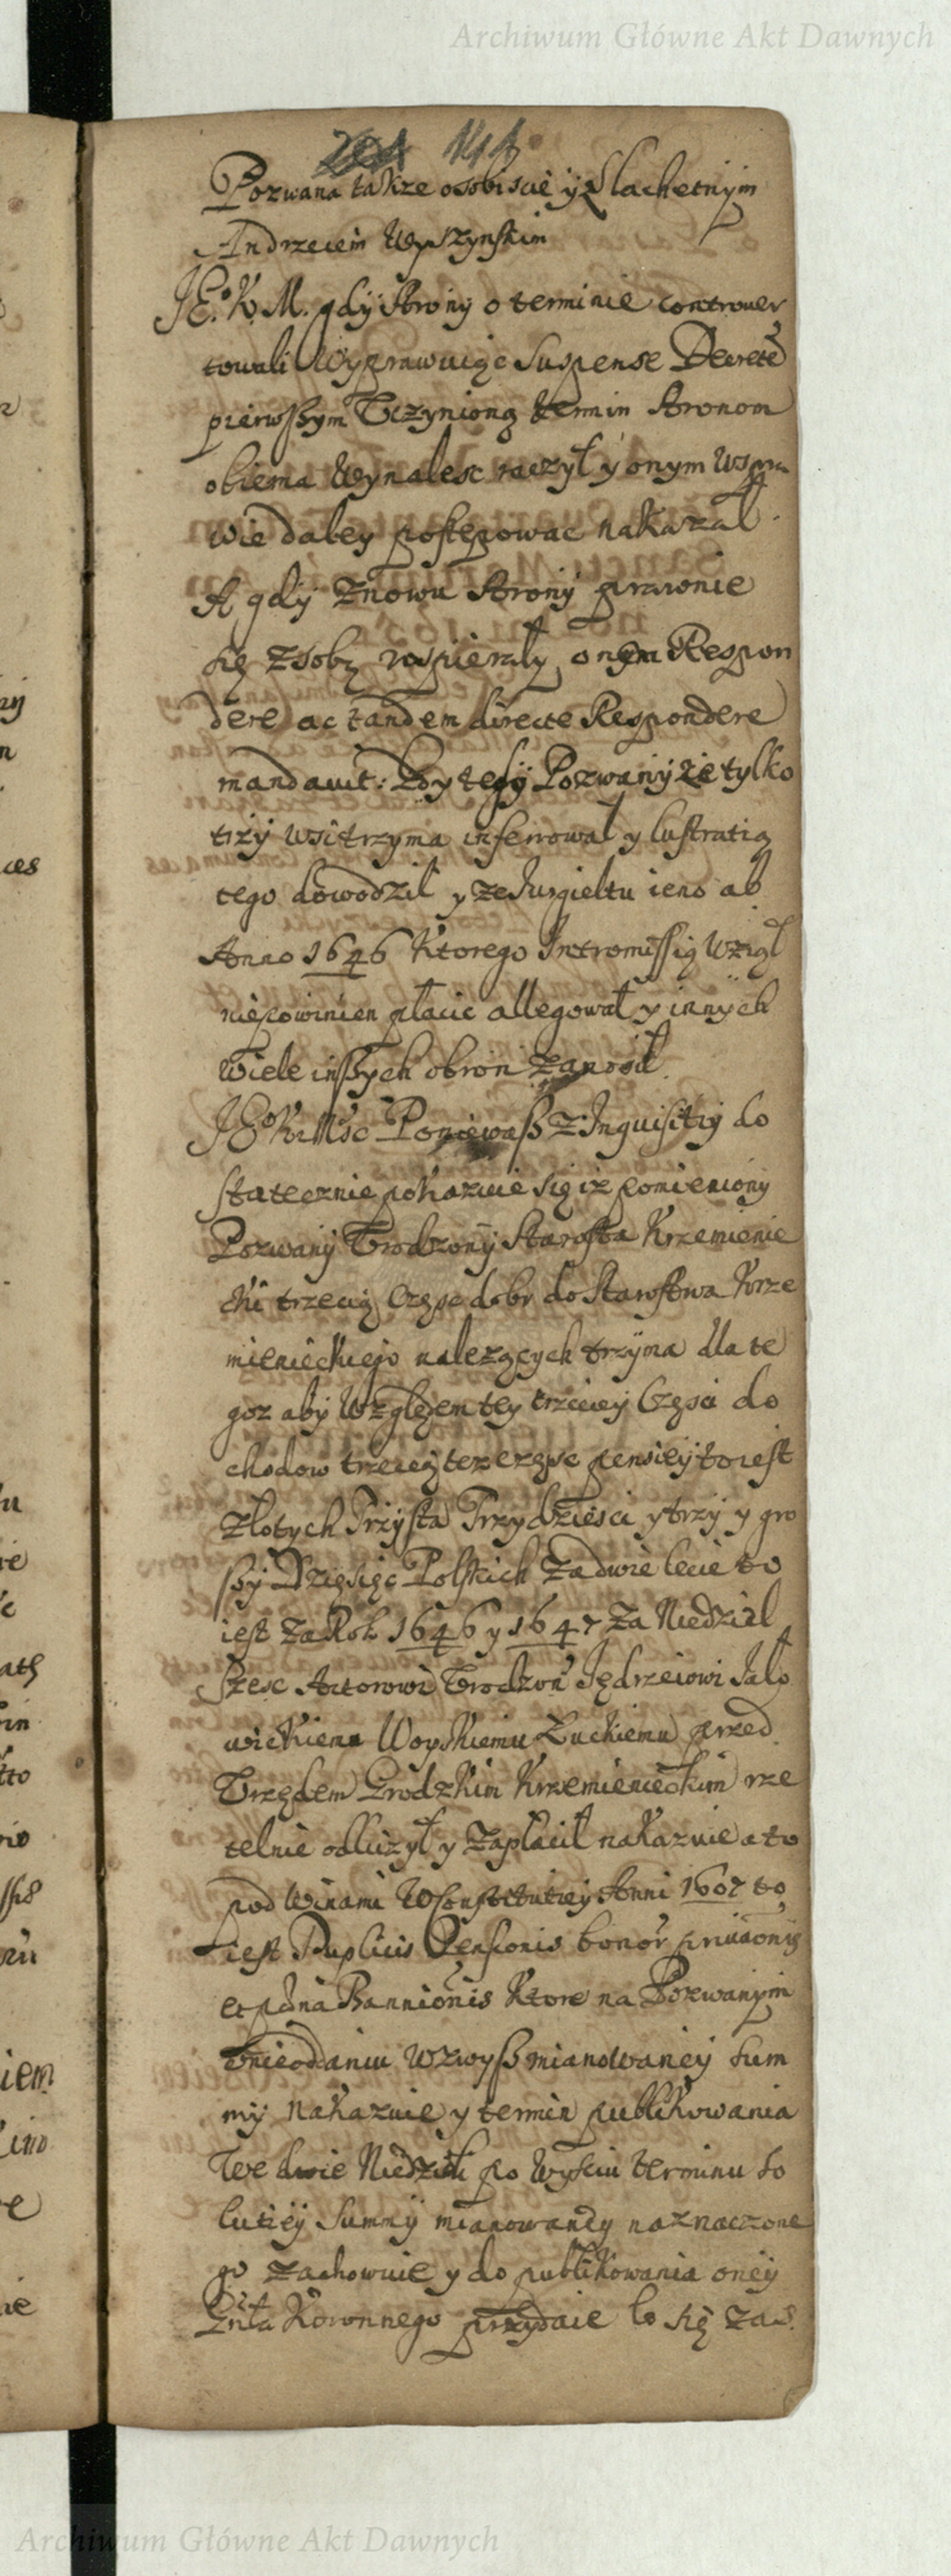 Archiwum Główne Akt Dawnych
141
Pozwana także osobiscie y Slachetnym
Andrzeiem Wyszynskim
JE.K.M. gdy Strony o terminie controuer
towali Wyprawuiąc Suspense Decrete
pierwszym Uczynioną termin Stronom
obiema Wynalesc raczył y onym Wspra
wie daley postępowac nakazał
A gdy znowu Strony prawnie
się zsobą wspierały onym Respon
dere ac tandem directe Respondere
mandauit: Pozwany że tylko
trzy wsi trzyma inferrował y lustratią
tego dowodził y ze Jurgieltu ieno ab
Anno 1646 Ktorego Intromissią Wziął
niepowinien płacic allegował y innych
Wiele inszych obron zanosił.
JEo KrMsc Poniewasz z Inquisitiy do
statecznie pokazuie się iz pomieniony
Pozwany Urodzony Starosta Krzemienie
cki trzecią Częsc dobr do Starostwa Krze
mienieckiego nalezących trzyma dla te
goz aby Względem tey trzeciey Częsci do
chodow trzecią tez częsc pensiey to iest
Złotych Trzysta Trzydziesci y trzy y gro
szy Dziesięc Polskich za dwie lecie to
iest za Rok 1646 y 1647 Za Niedziel
Szesc Actorowi Urodzon Jędrzeiowi Jało
wickiemu Woyskiemu Łuckiemu przed
Urzędem Grodzkim Krzemienieckim rze
telnie odliczył y Zapłacił nakazuie a to
pod Winami W Constitutiey Anni 1607 to
iest Duplicis Pensionis bonor priuaonis
et pæna Bannionis Ktore na Pozwanym
Wnieoddaniu Wzwysz mianowaney Sum
my nakazuie y termin publikowania
We dwie Niedzieli po Wysciu terminu so
lutiey Summy mianowaney naznaczone
go zachowuie y do publikowania oney
Gnła Koronnego przydaie co się zas
Archiwum Główne Akt Dawnych